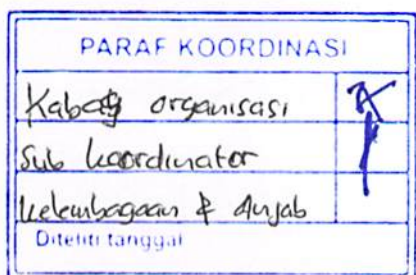 PARAF KOORDINASI
Kabag organisasi
Sub koordinator
kelembagaan & Anjab
Diteliti tanggal